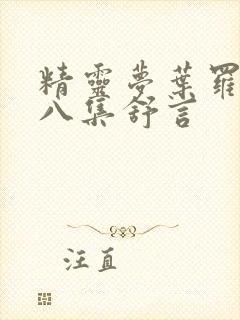 精靈夢葉羅
八集舒言
汪直